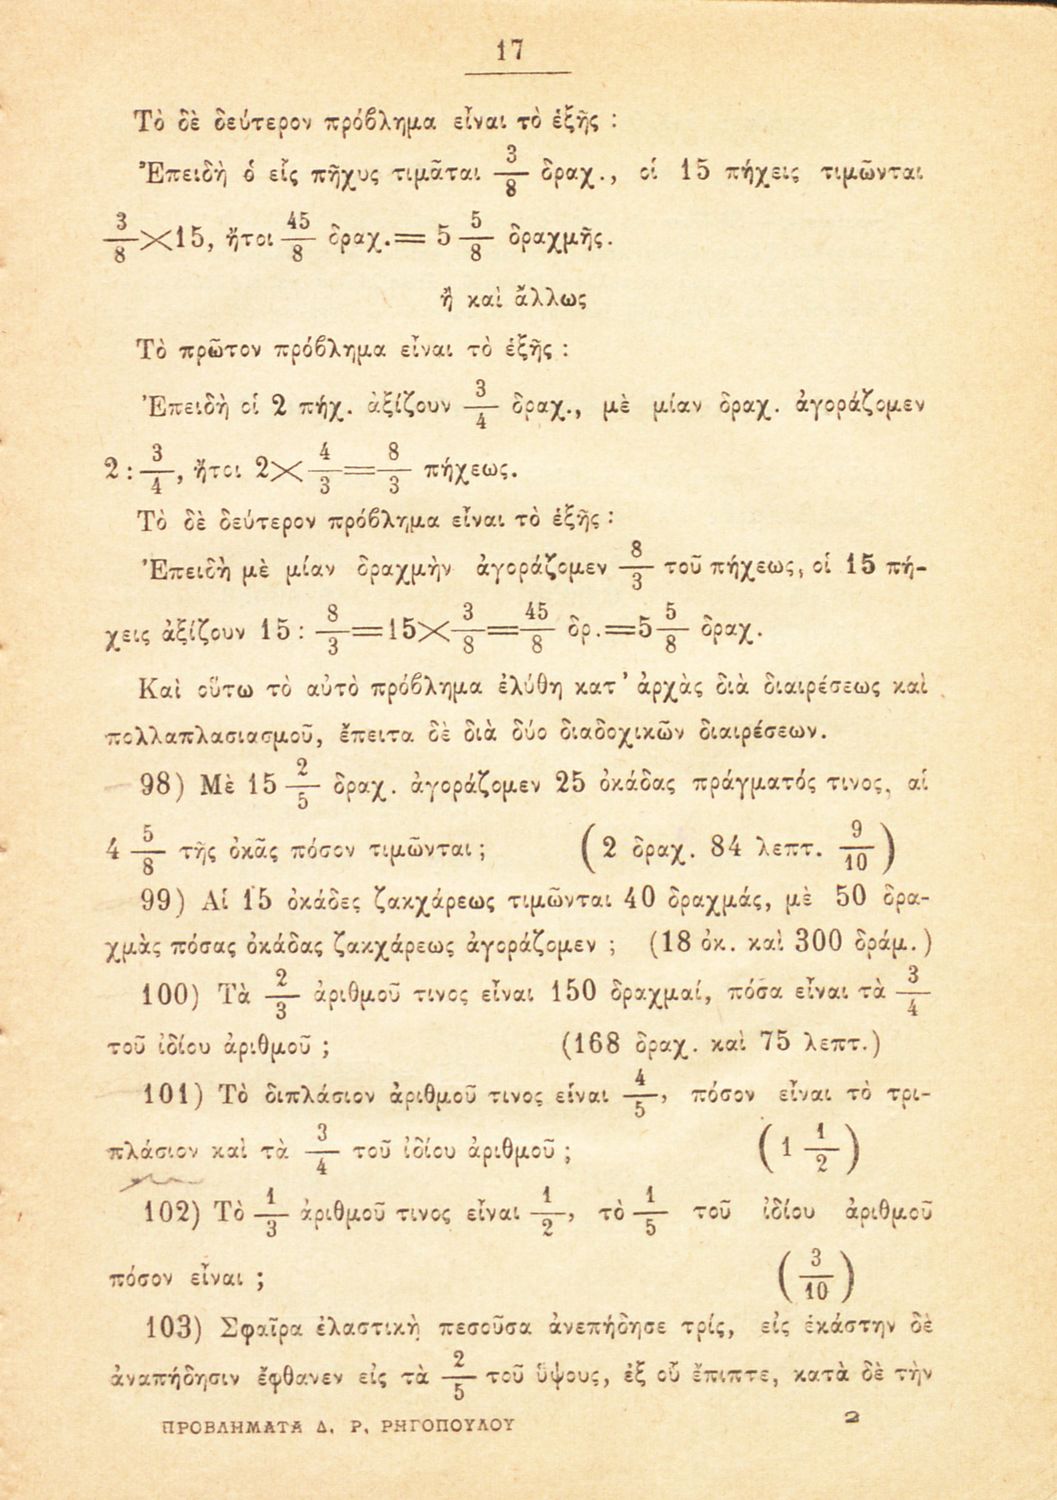 17
Τὸ δὲ δεύτερον πρόβλημα εἶναι τὸ ἑξῆς :
Ἐπειδὴ ὁ εἷς πῆχυς τιμᾶται 3/8 δραχ., οἱ 15 πήχεις τιμῶνται
3/8×15, ἤτοι 45/8 δραχ.= 5 5/8 δραχμῆς.
ἢ καὶ ἄλλως
Τὸ πρῶτον πρόβλημα εἶναι τὸ ἑξῆς :
Ἐπειδὴ οἱ 2 πήχ. ἀξίζουν 3/4 δραχ., μὲ μίαν δραχ. ἀγοράζομεν
2 : 3/4, ἤτοι 2× 4/3 = 8/3 πήχεως.
Τὸ δὲ δεύτερον πρόβλημα εἶναι τὸ ἑξῆς :
Ἐπειδὴ μὲ μίαν δραχμὴν ἀγοράζομεν 8/3 τοῦ πήχεως, οἱ 15 πή-
χεις ἀξίζουν 15 : 8/3 = 15× 3/8 = 45/8 δρ.=5 5/8 δραχ.
Καὶ οὕτω τὸ αὐτὸ πρόβλημα ἐλύθη κατ' ἀρχὰς διὰ διαιρέσεως καὶ
πολλαπλασιασμοῦ, ἔπειτα δὲ διὰ δύο διαδοχικῶν διαιρέσεων.
98) Μὲ 15 2/5 δραχ. ἀγοράζομεν 25 ὀκάδας πράγματός τινος, αἱ
4 5/8 τῆς ὀκᾶς πόσον τιμῶνται ; (2 δραχ. 84 λεπτ. 9/10)
99) Αἱ 15 ὀκάδες ζακχάρεως τιμῶνται 40 δραχμάς, μὲ 50 δρα-
χμὰς πόσας ὀκάδας ζακχάρεως ἀγοράζομεν ; (18 ὀκ. καὶ 300 δράμ.)
100) Τὰ 2/3 ἀριθμοῦ τινος εἶναι 150 δραχμαί, πόσα εἶναι τὰ 3/4
τοῦ ἰδίου ἀριθμοῦ ; (168 δραχ. καὶ 75 λεπτ.)
101) Τὸ διπλάσιον ἀριθμοῦ τινος εἶναι 4/5, πόσον εἶναι τὸ τρι-
πλάσιον καὶ τὰ 3/4 τοῦ ἰδίου ἀριθμοῦ ; (1 1/2)
102) Τὸ 1/3 ἀριθμοῦ τινος εἶναι 1/2, τὸ 1/5 τοῦ ἰδίου ἀριθμοῦ
πόσον εἶναι ; (3/10)
103) Σφαῖρα ἐλαστικὴ πεσοῦσα ἀνεπήδησε τρίς, εἰς ἑκάστην δὲ
ἀναπήδησιν ἔφθανεν εἰς τὰ 2/5 τοῦ ὕψους, ἐξ οὗ ἔπιπτε, κατὰ δὲ τὴν
ΠΡΟΒΛΗΜΑΤΑ Δ. Ρ. ΡΗΓΟΠΟΥΛΟΥ 2